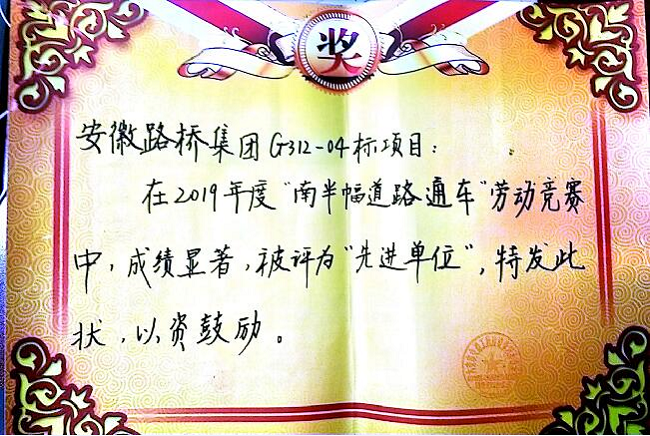 奖
安徽路桥集团G312-04标项目：
在2019年度"南半幅道路通车"劳动竞赛
中，成绩显著，被评为"先进单位"，特发此
状，以资鼓励。